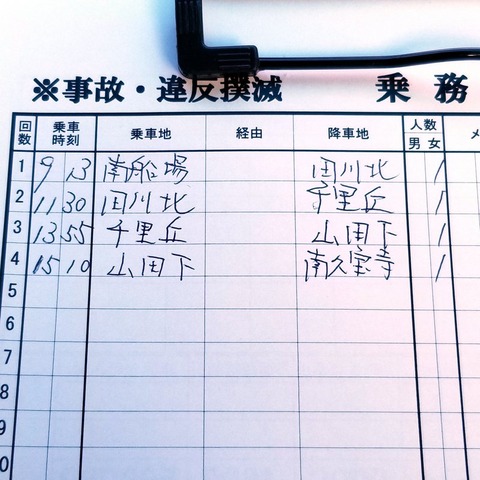 ※事故・違反撲滅 乗務
回数 乗車時刻 乗車地 経由 降車地 人数 男女 メ
1 9 13 南船場 田川北 1
2 11 30 田川北 千里丘 1
3 13 55 千里丘 山田下 1
4 15 10 山田下 南久宝寺 1
5
6
7
8
9
0